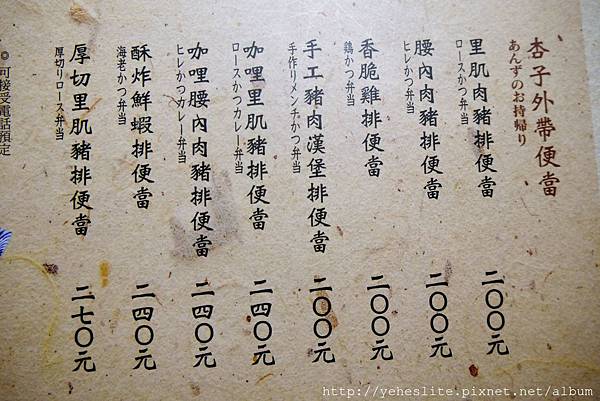 杏子外帶便當
あんずのお持帰り
里肌肉豬排便當
ロースかつ弁当
二〇〇元
腰內肉豬排便當
ヒレかつ弁当
二〇〇元
香脆雞排便當
鶏かつ弁当
二〇〇元
手工豬肉漢堡排便當
手作りメンチかつ弁当
二〇〇元
咖哩里肌豬排便當
ロースかつカレー弁当
二四〇元
咖哩腰內肉豬排便當
ヒレかつカレー弁当
二四〇元
酥炸鮮蝦排便當
海老かつ弁当
二四〇元
厚切里肌豬排便當
厚切りロース弁当
二七〇元
◎可接受電話預定
http://yeheslite.pixnet.net/album